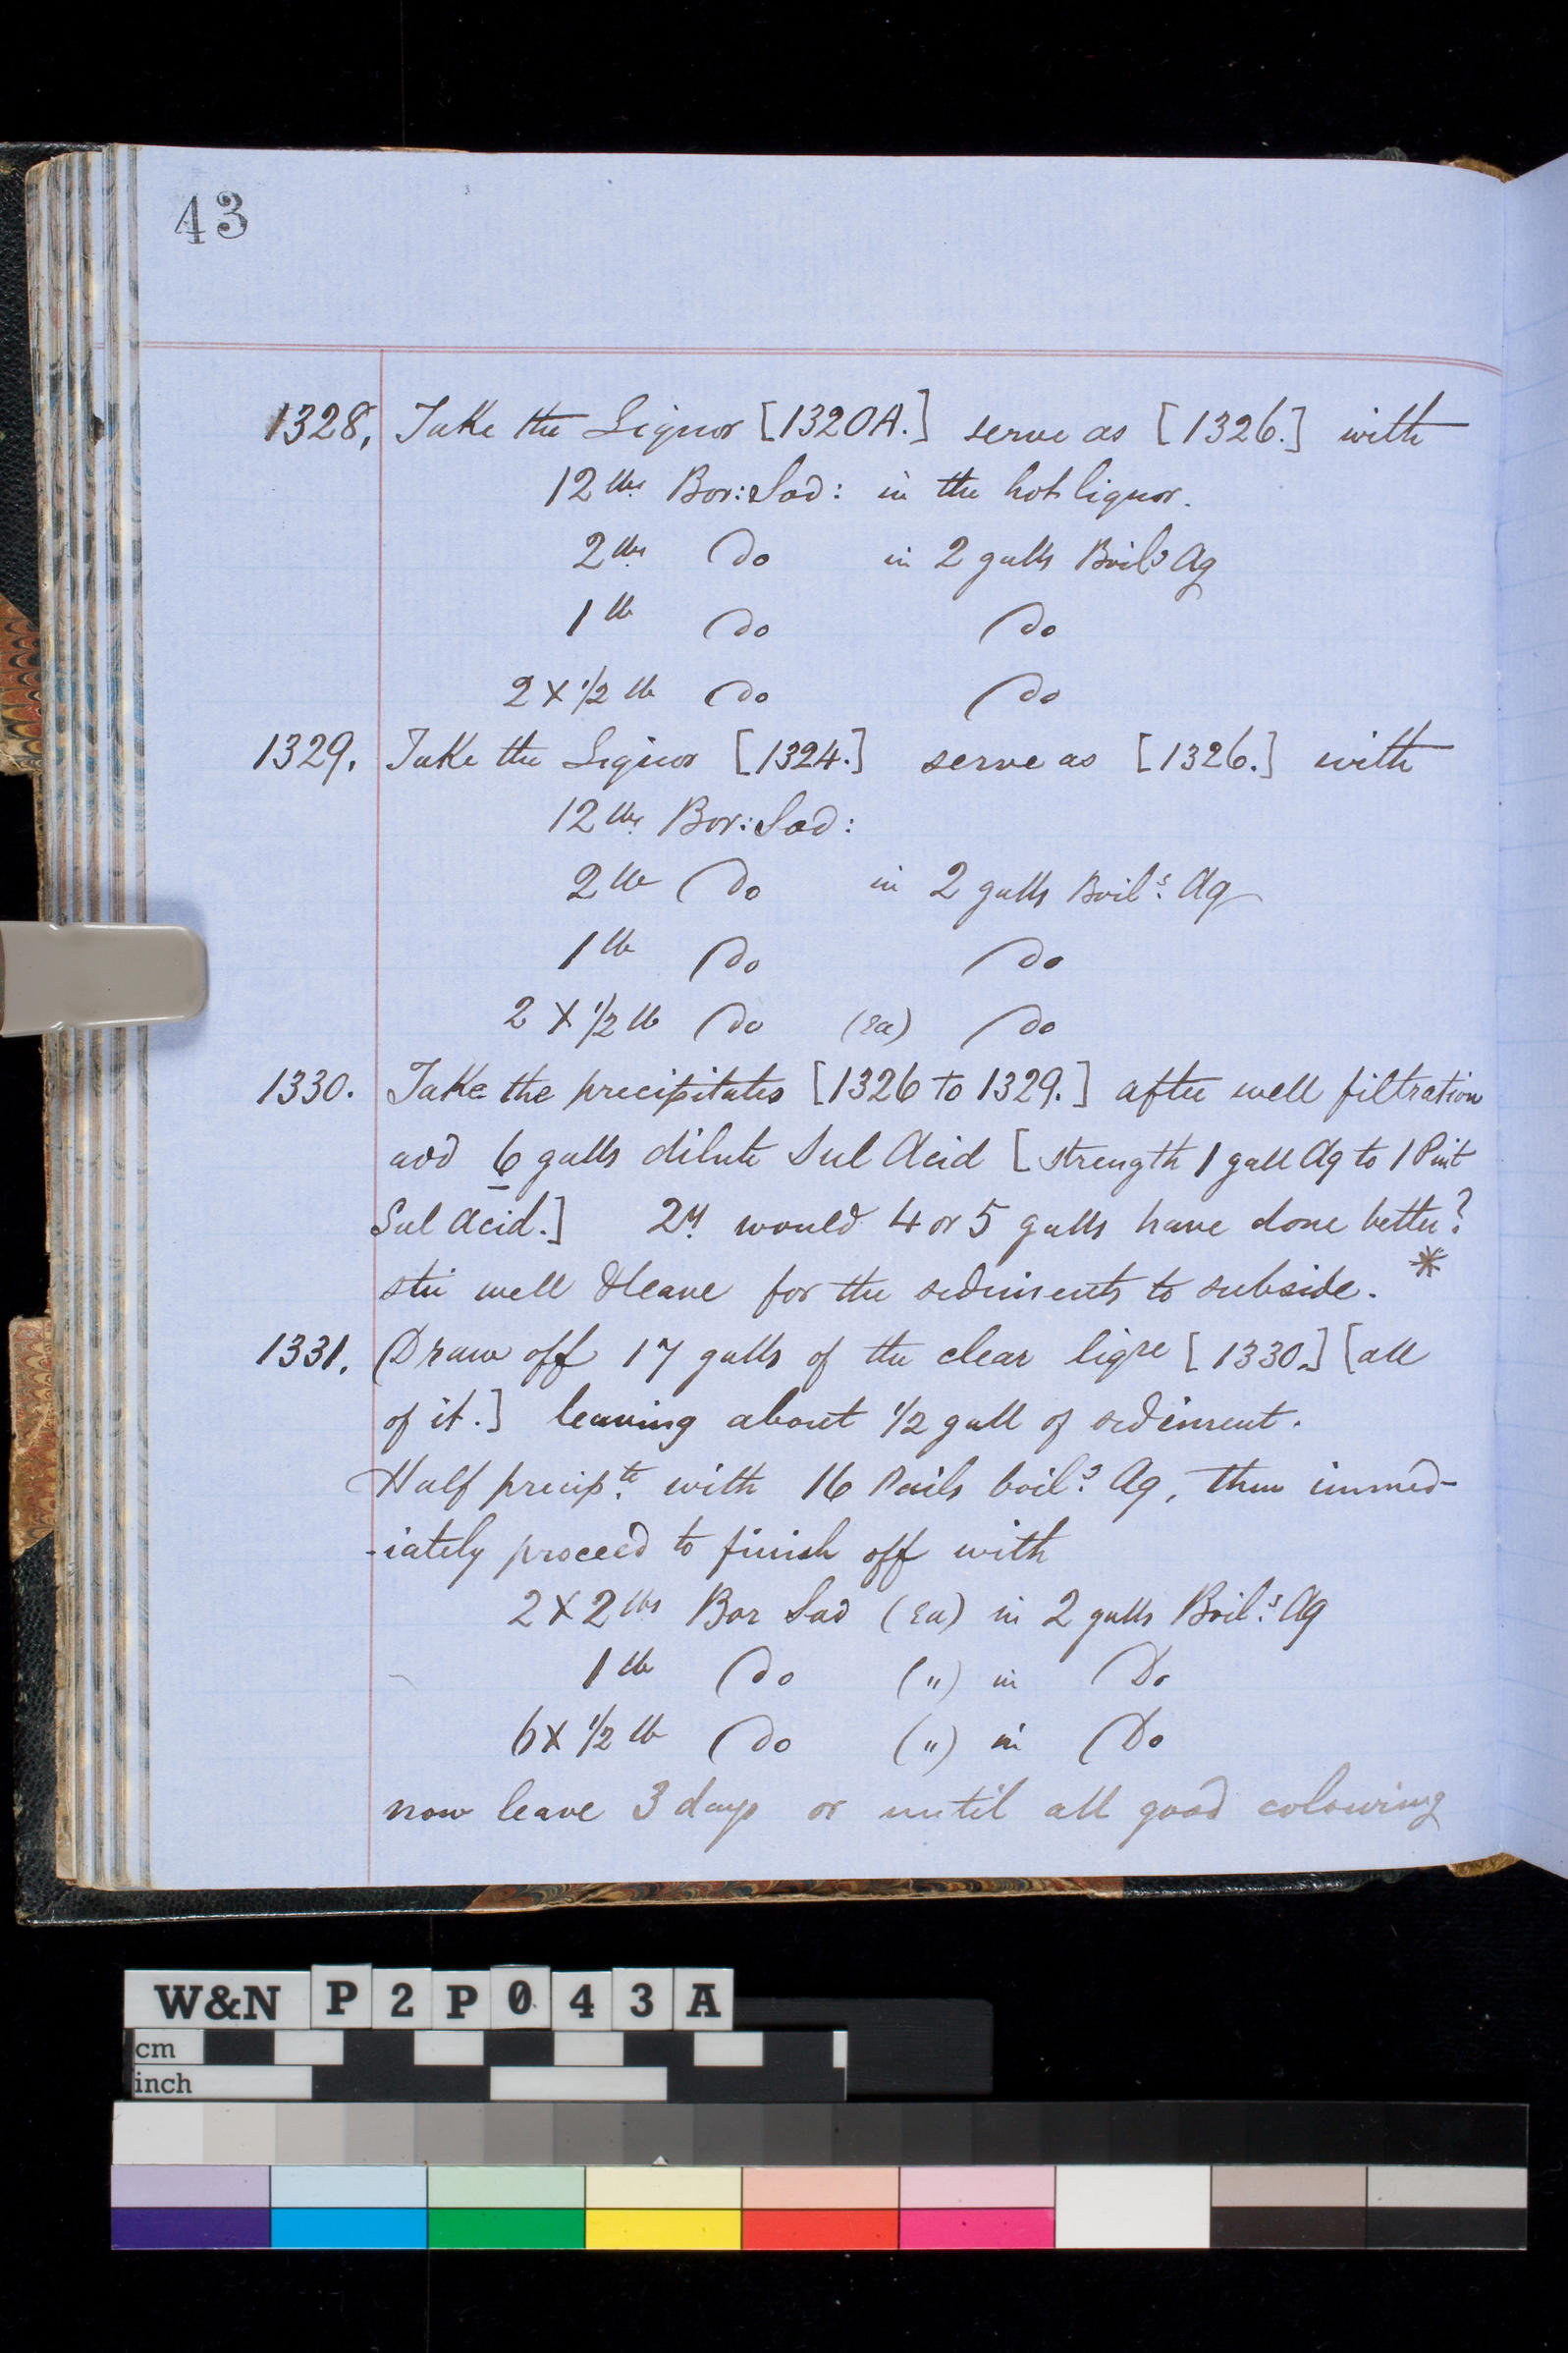 43
1328, Take the Liquor [1320A.] serve as [1326.] with
12 lbs. Bor: Sod: in the hot liquor.
2 lbs. Do in 2 galls Boilg Aq
1 lb Do Do
2 X 1/2 lb Do Do
1329. Take the Liquor [1324.] serve as [1326.] with
12 lbs. Bor: Sod:
2 lb Do in 2 galls Boilg. Aq
1 lb Do Do
2 X 1/2 lb Do (Ea) Do
1330. Take the precipitates [1326 to 1329.] after well filtration
add 6 galls dilute Sul Acid [strength 1 gall Aq to 1 Pint
Sul Acid.] Qy. would 4 or 5 galls have done better?
stir well & leave for the sediments to subside. *
1331. Draw off 17 galls of the clear liqre [1330.] [all
of it.] leaving about 1/2 gall of sediment.
Half precipte. with 16 Pails boilg. Aq, then immed-
-iately proceed to finish off with
2 X 2 lbs Bor Sod (Ea) in 2 galls Boilg. Aq
1 lb Do (") in Do
6 X 1/2 lb Do (") in Do
now leave 3 days or until all good colouring
W&N P2P043A
cm
inch